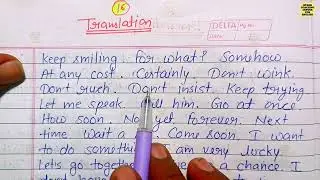 16
Translation
DELTA
keep smiling. For what? Somehow
At any cost. Certainly. Don't wink.
Don't ruch. Don't insist. Keep trying
Let me speak. him. Go at once.
How soon. yet forever. Next
time wait a Come soon. I want
to do someth am very lucky.
Let's go toget e a chance. I